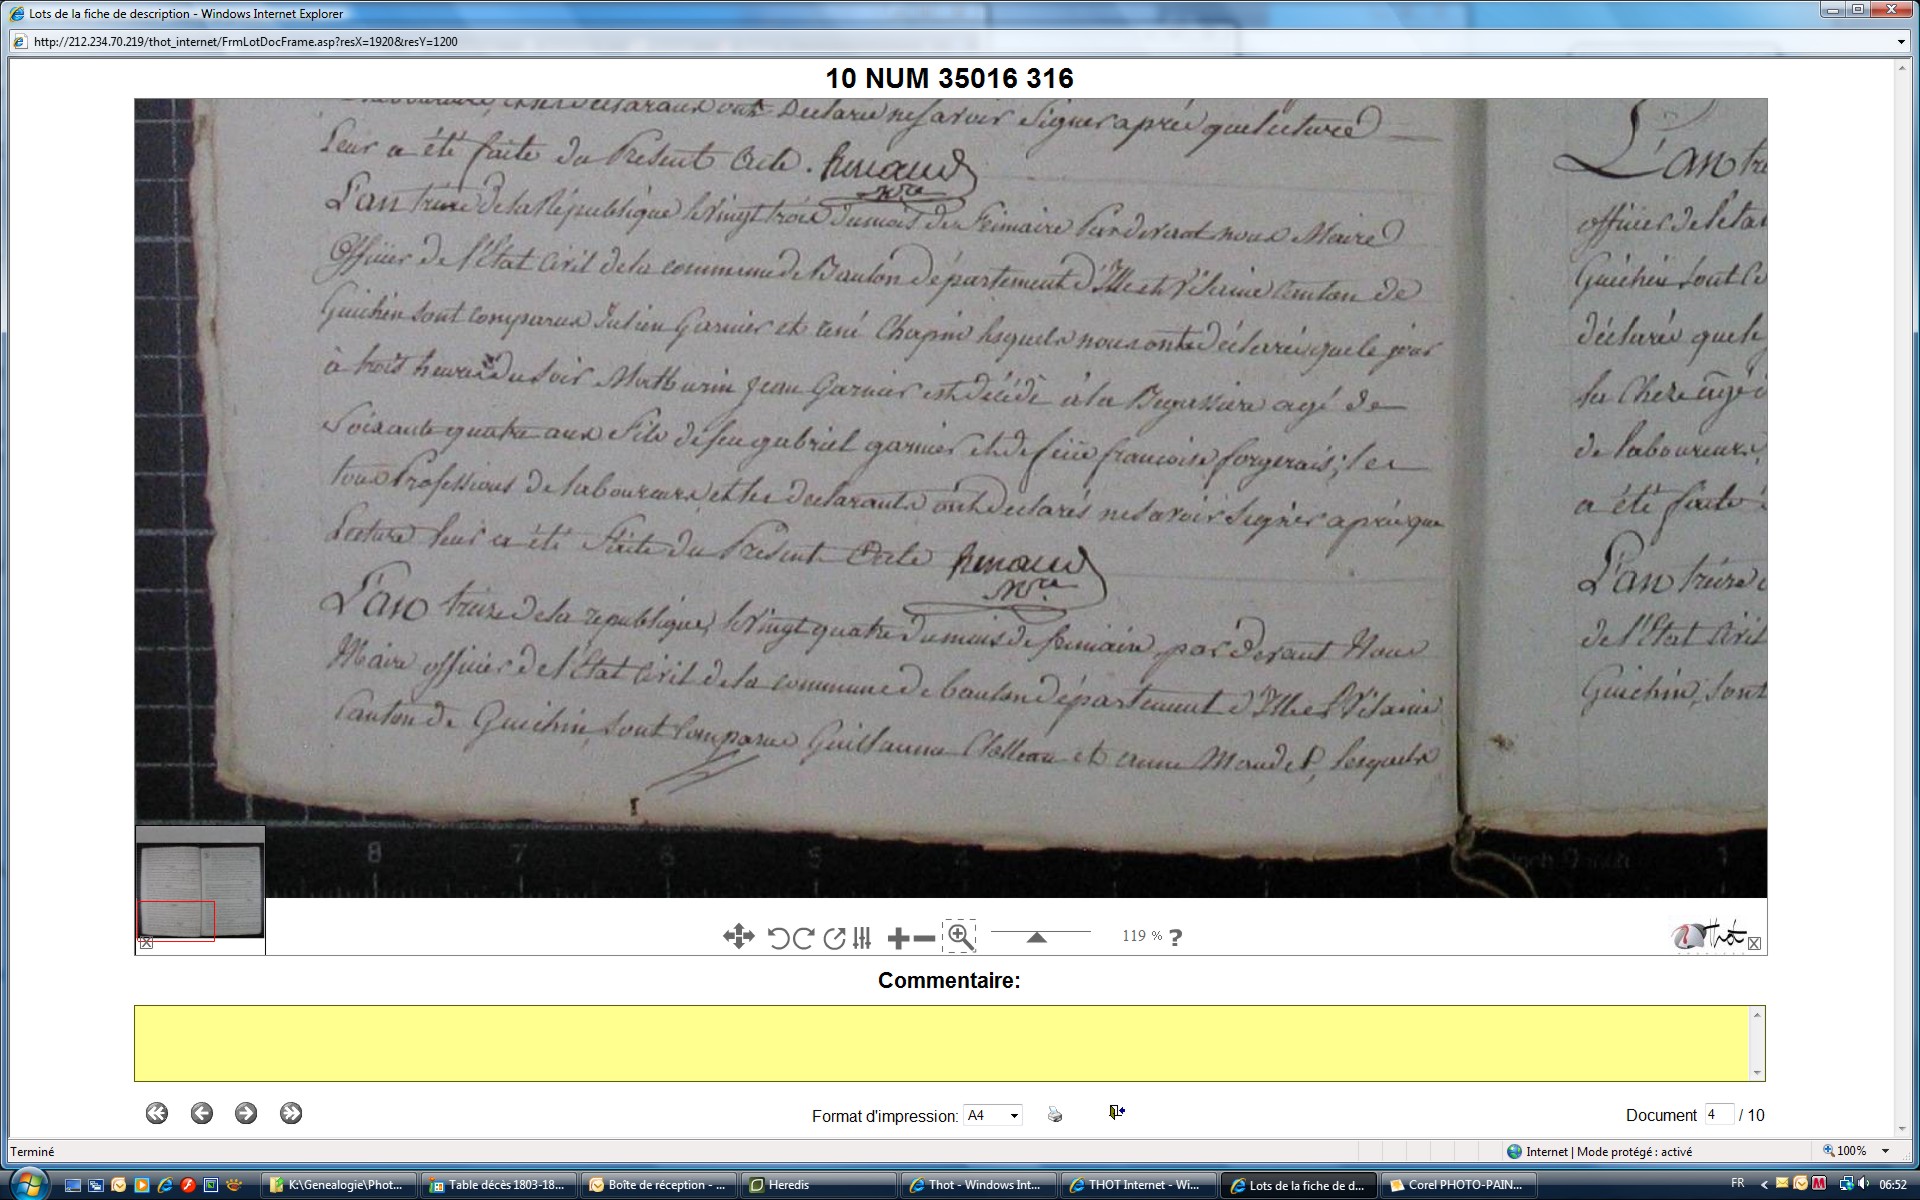 Lots de la fiche de description - Windows Internet Explorer
http://212.234.70.219/thot_internet/FrmLotDocFrame.asp?resX=1920&resY=1200
10 NUM 35016 316
ont Declaré ne savoir Signer aprés que lecture
Leur a été faite du Présent Acte. Renaud
Mre
L'an treize de la République le Vingt trois du mois de Frimaire Pardevant nous Maire
Officier de l'Etat Civil de la commune de Baulon département d'Ille et Vilaine Canton de
Guichen sont comparus Julien Garnier et rené Chapin lesquels nous ont déclarés que le jour
à trois heures du soir Mathurin Jean Garnier est décédé à la Begassiere agé de
Soixante quatre ans Fils de feu gabriel garnier et de feüe francoise forgerais; les
tous Professions de laboureurs et les declarants ont declarés ne savoir Signer aprés que
Lecture leur a été Faite du Présent Acte Renaud
Mre
L'an treize de la republique, le Vingt quatre du mois de frimaire, par devant Nous
Maire officier de l'Etat Civil de la commune de baulon département d'Ille et Vilaine
Canton de Guichen, sont Comparus Guillaume et anne Maudet, lesquels
L'an tre
officier de l'eta
Guichen sont Co
déclaré que le
la Cheze agé d
de laboureurs,
a été faite
L'an treize d
de l'Etat Civil
Guichen, sont
8 7 6 5 4 3
119 % ?
Thot
Commentaire:
Format d'impression: A4
Document 4 / 10
Terminé
Internet | Mode protégé : activé
100%
K:\Genealogie\Phot...
Table décès 1803-18...
Boîte de réception - ...
Heredis
Thot - Windows Int...
THOT Internet - Wi...
Lots de la fiche de d...
Corel PHOTO-PAIN...
FR
06:52